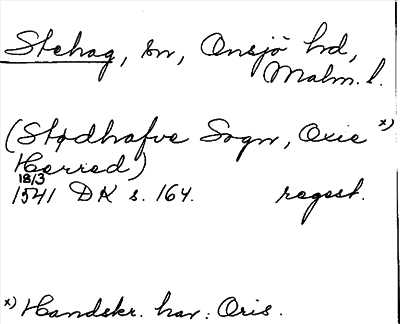 Stehag, sn, Onsjö hd,
Malm. l.
(Stødhafve Sogn, Oxie x)
Herred)
18/3
1541 DK s. 164. regest.
x) Handskr. har: Oris.